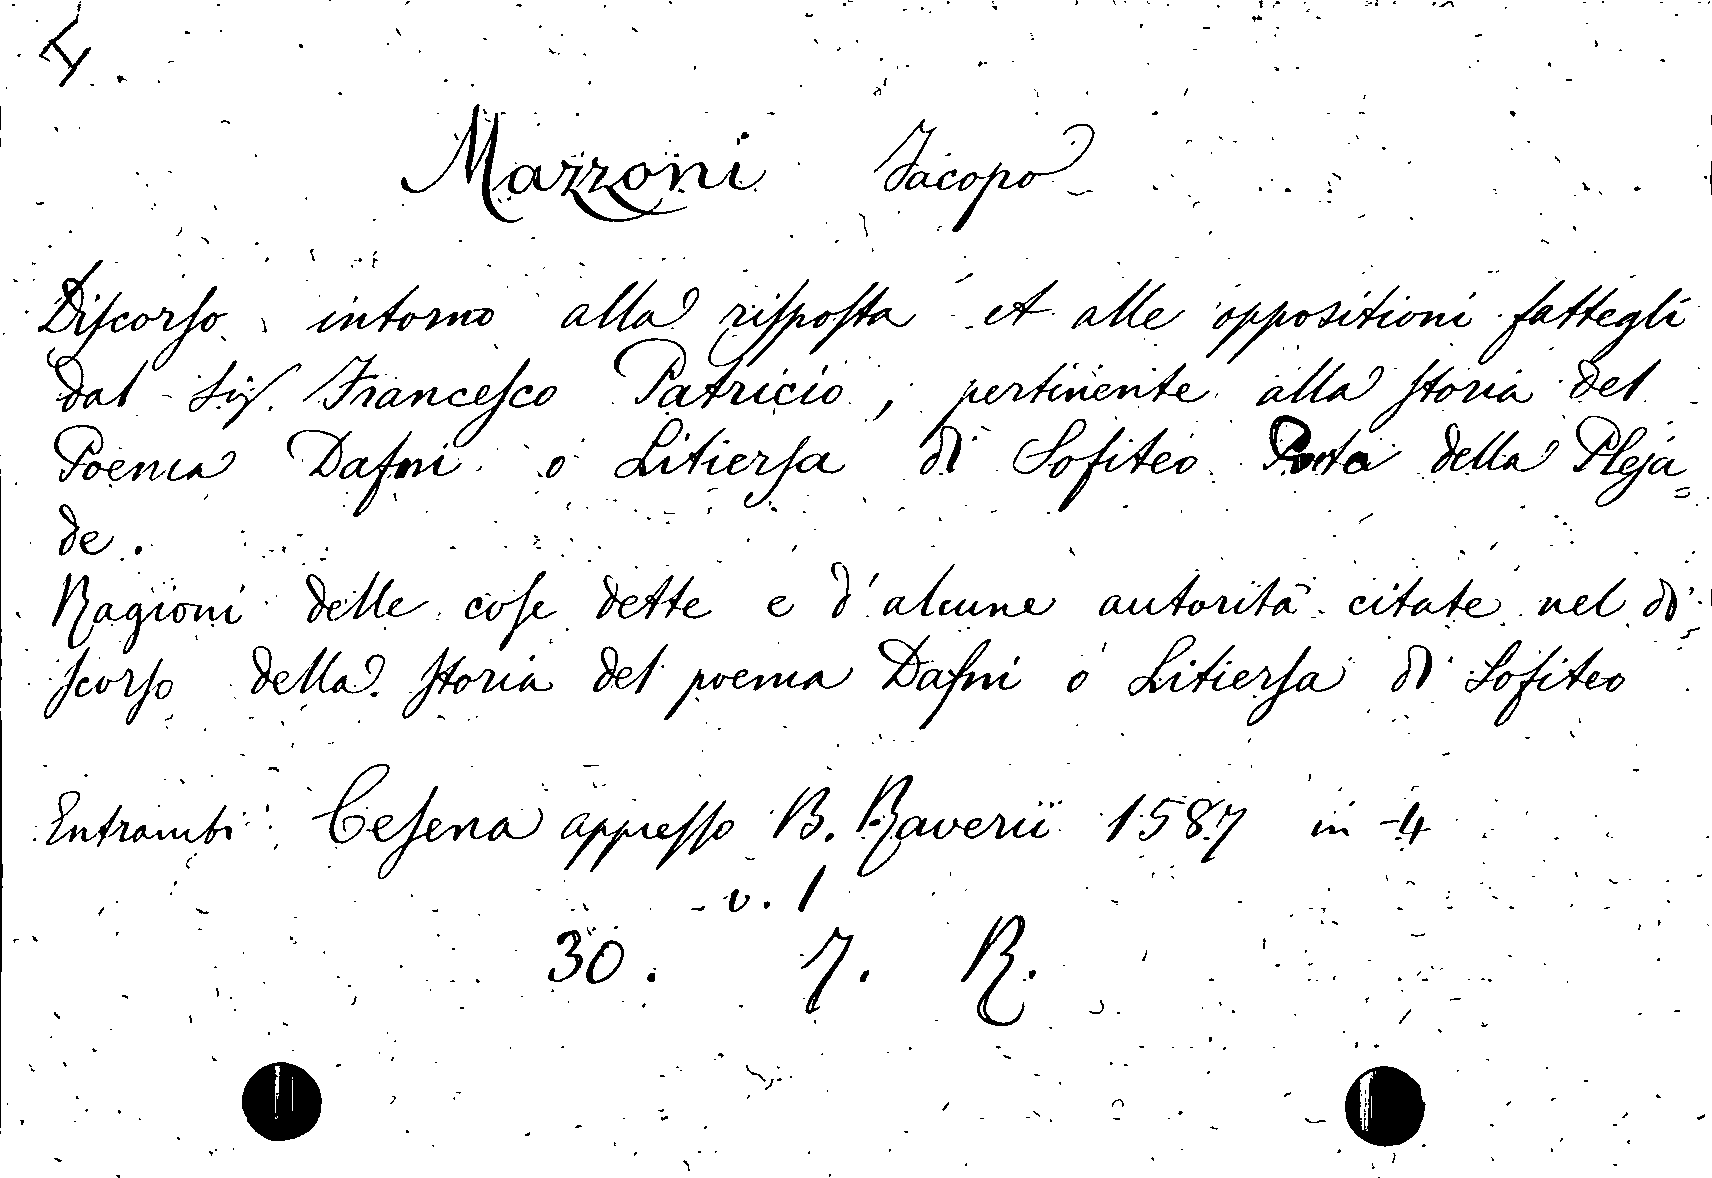 I
Mazzoni Jacopo
Discorso intorno alla risposta et alle oppositioni fattegli
dal Sig. Francesco Patricio, pertinente alla storia del
Poema Dafni o Litiersa di Sofiteo Poeta della Pleja=
de.
Ragioni delle cose dette e d'alcune autorità citate nel di=
scorso della storia del poema Dafni o Litiersa di Sofiteo
Entrambi Cesena appresso B. Raverii 1587 in 4
v. 1
30. 7. R.